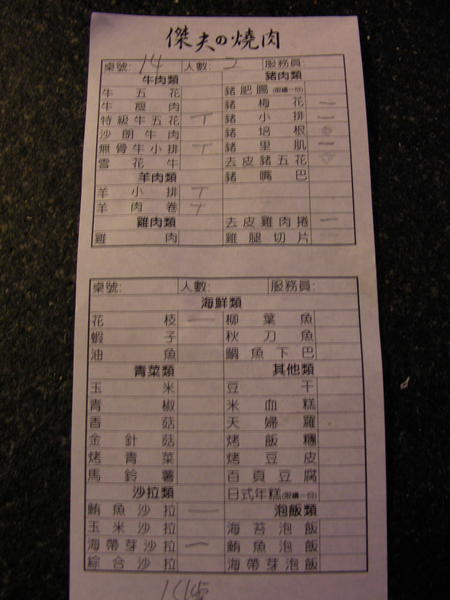 傑夫の燒肉
桌號: 14 人數: 2 服務員:
牛肉類 豬肉類
牛五花 豬肥腸(限續一份)
牛瘦肉 豬梅花 一
特級牛五花 T 豬小排 一
沙朗牛肉 豬培根
無骨牛小排 T 豬里肌 一
雪花牛 去皮豬五花
羊肉類 豬嘴巴
羊小排 T
羊肉卷 T
雞肉類 去皮雞肉捲 一
雞肉 雞腿切片
桌號: 人數: 服務員:
海鮮類
花枝 一 柳葉魚
蝦子 秋刀魚
油魚 鯛魚下巴
青菜類 其他類
玉米 豆干
青椒 米血糕
香菇 天婦羅
金針菇 烤飯糰
烤青菜 烤豆皮
馬鈴薯 百頁豆腐
沙拉類 日式年糕(限續一份)
鮪魚沙拉 一 泡飯類
玉米沙拉 海苔泡飯
海帶芽沙拉 一 鮪魚泡飯
綜合沙拉 海帶芽泡飯